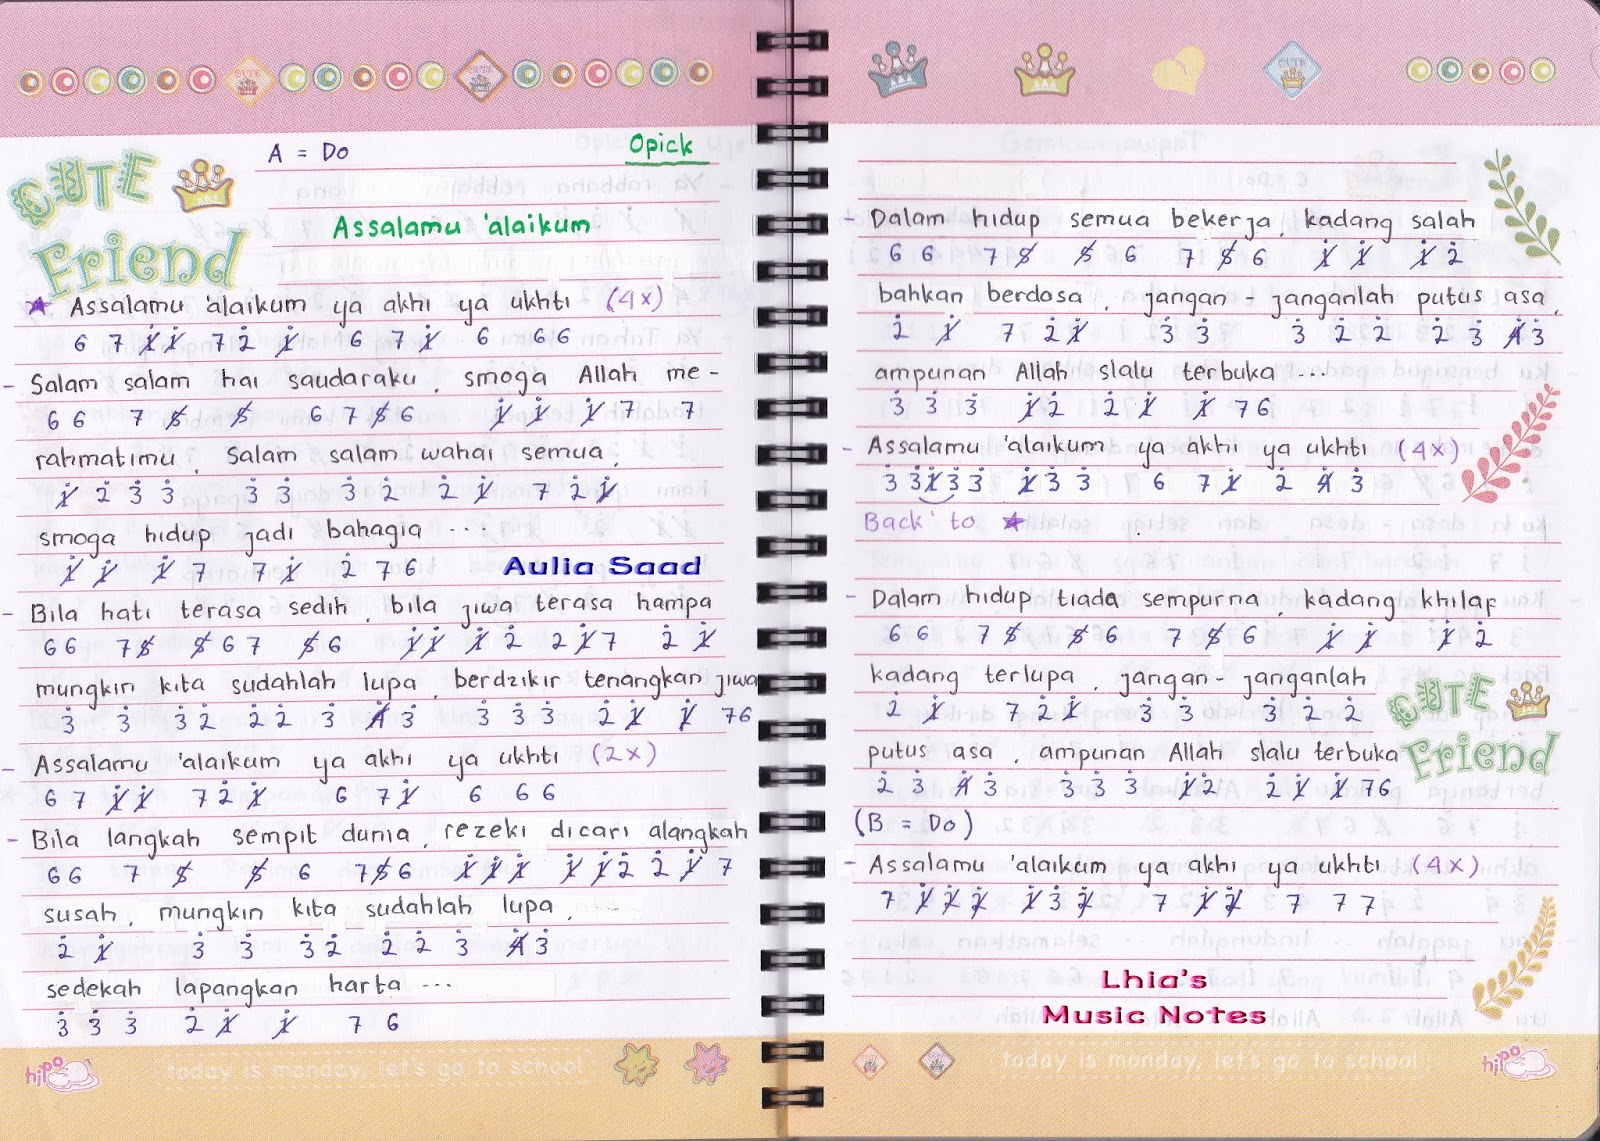 A = Do
Opick
CUTE
Friend
Assalamu 'alaikum
★ Assalamu 'alaikum ya akhi ya ukhti (4x)
6 7 1̸̇ 1̸̇ 7 2̇ 1̸̇ 6 7 1̸̇ 6 6 6
- Salam salam hai saudaraku, smoga Allah me-
6 6 7 5̸ 5̸ 6 7 5̸ 6 1̸̇ 1̸̇ 1̸̇ 7 7
rahmatimu, Salam salam wahai semua,
1̸̇ 2̇ 3̇ 3̇ 3̇ 3̇ 3̇ 2̇ 2̇ 1̸̇ 7 2̇ 1̸̇
smoga hidup jadi bahagia ....
1̸̇ 1̸̇ 1̸̇ 7 7 1̸̇ 2̇ 7 6
Aulia Saad
- Bila hati terasa sedih, bila jiwa terasa hampa
6 6 7 5̸ 5̸ 6 7 5̸ 6 1̸̇ 1̸̇ 1̸̇ 2̇ 2̇ 1̸̇ 7 2̇ 1̸̇
mungkin kita sudahlah lupa, berdzikir tenangkan jiwa
3̇ 3̇ 3̇ 2̇ 2̇ 2̇ 3̇ 4̸̇ 3̇ 3̇ 3̇ 3̇ 2̇ 1̸̇ 1̸̇ 7 6
- Assalamu 'alaikum ya akhi ya ukhti (2x)
6 7 1̸̇ 1̸̇ 7 2̇ 1̸̇ 6 7 1̸̇ 6 6 6
- Bila langkah sempit dunia, rezeki dicari alangkah
6 6 7 5̸ 5̸ 6 7 5̸ 6 1̸̇ 1̸̇ 1̸̇ 1̸̇ 1̸̇ 2̇ 2̇ 1̸̇ 7
susah, mungkin kita sudahlah lupa, ...
2̇ 1̸̇ 3̇ 3̇ 3̇ 2̇ 2̇ 2̇ 3̇ 4̸̇ 3̇
sedekah lapangkan harta ...
3̇ 3̇ 3̇ 2̇ 1̸̇ 1̸̇ 7 6
hipo
today is monday, let's go to school
- Dalam hidup semua bekerja, kadang salah
6 6 7 5̸ 5̸ 6 7 5̸ 6 1̸̇ 1̸̇ 1̸̇ 2̇
bahkan berdosa, jangan - janganlah putus asa,
2̇ 1̸̇ 7 2̇ 1̸̇ 3̇ 3̇ 3̇ 2̇ 2̇ 2̇ 3̇ 4̸̇ 3̇
ampunan Allah slalu terbuka ....
3̇ 3̇ 3̇ 1̸̇ 2̇ 2̇ 1̸̇ 1̸̇ 7 6
- Assalamu 'alaikum ya akhi ya ukhti (4x)
3̇ 3̇ 1̸̇ 3̇ 3̇ 1̸̇ 3̇ 3̇ 6 7 1̸̇ 2̇ 4̸̇ 3̇
Back to ★
- Dalam hidup tiada sempurna, kadang khilaf
6 6 7 5̸ 5̸ 6 7 5̸ 6 1̸̇ 1̸̇ 1̸̇ 2̇
kadang terlupa, jangan - janganlah
2̇ 1̸̇ 7 2̇ 1̸̇ 3̇ 3̇ 3̇ 2̇ 2̇
CUTE
Friend
putus asa, ampunan Allah slalu terbuka
2̇ 3̇ 4̸̇ 3̇ 3̇ 3̇ 3̇ 1̸̇ 2̇ 2̇ 1̸̇ 1̸̇ 7 6
(B = Do)
- Assalamu 'alaikum ya akhi ya ukhti (4x)
7 1̸̇ 2̸̇ 2̸̇ 1̸̇ 3̇ 2̸̇ 7 1̸̇ 2̸̇ 7 7 7
Lhia's
Music Notes
today is monday, let's go to school
hipo